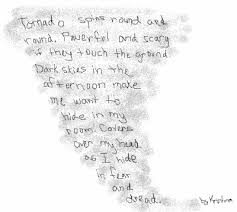 Tornado spins round and
round. Powerful and scary
if they touch the ground
Dark skies in the
afternoon make
me want to
hide in my
room. Covers
over my head
as I hide
in fear
and
dread.
by Kristina